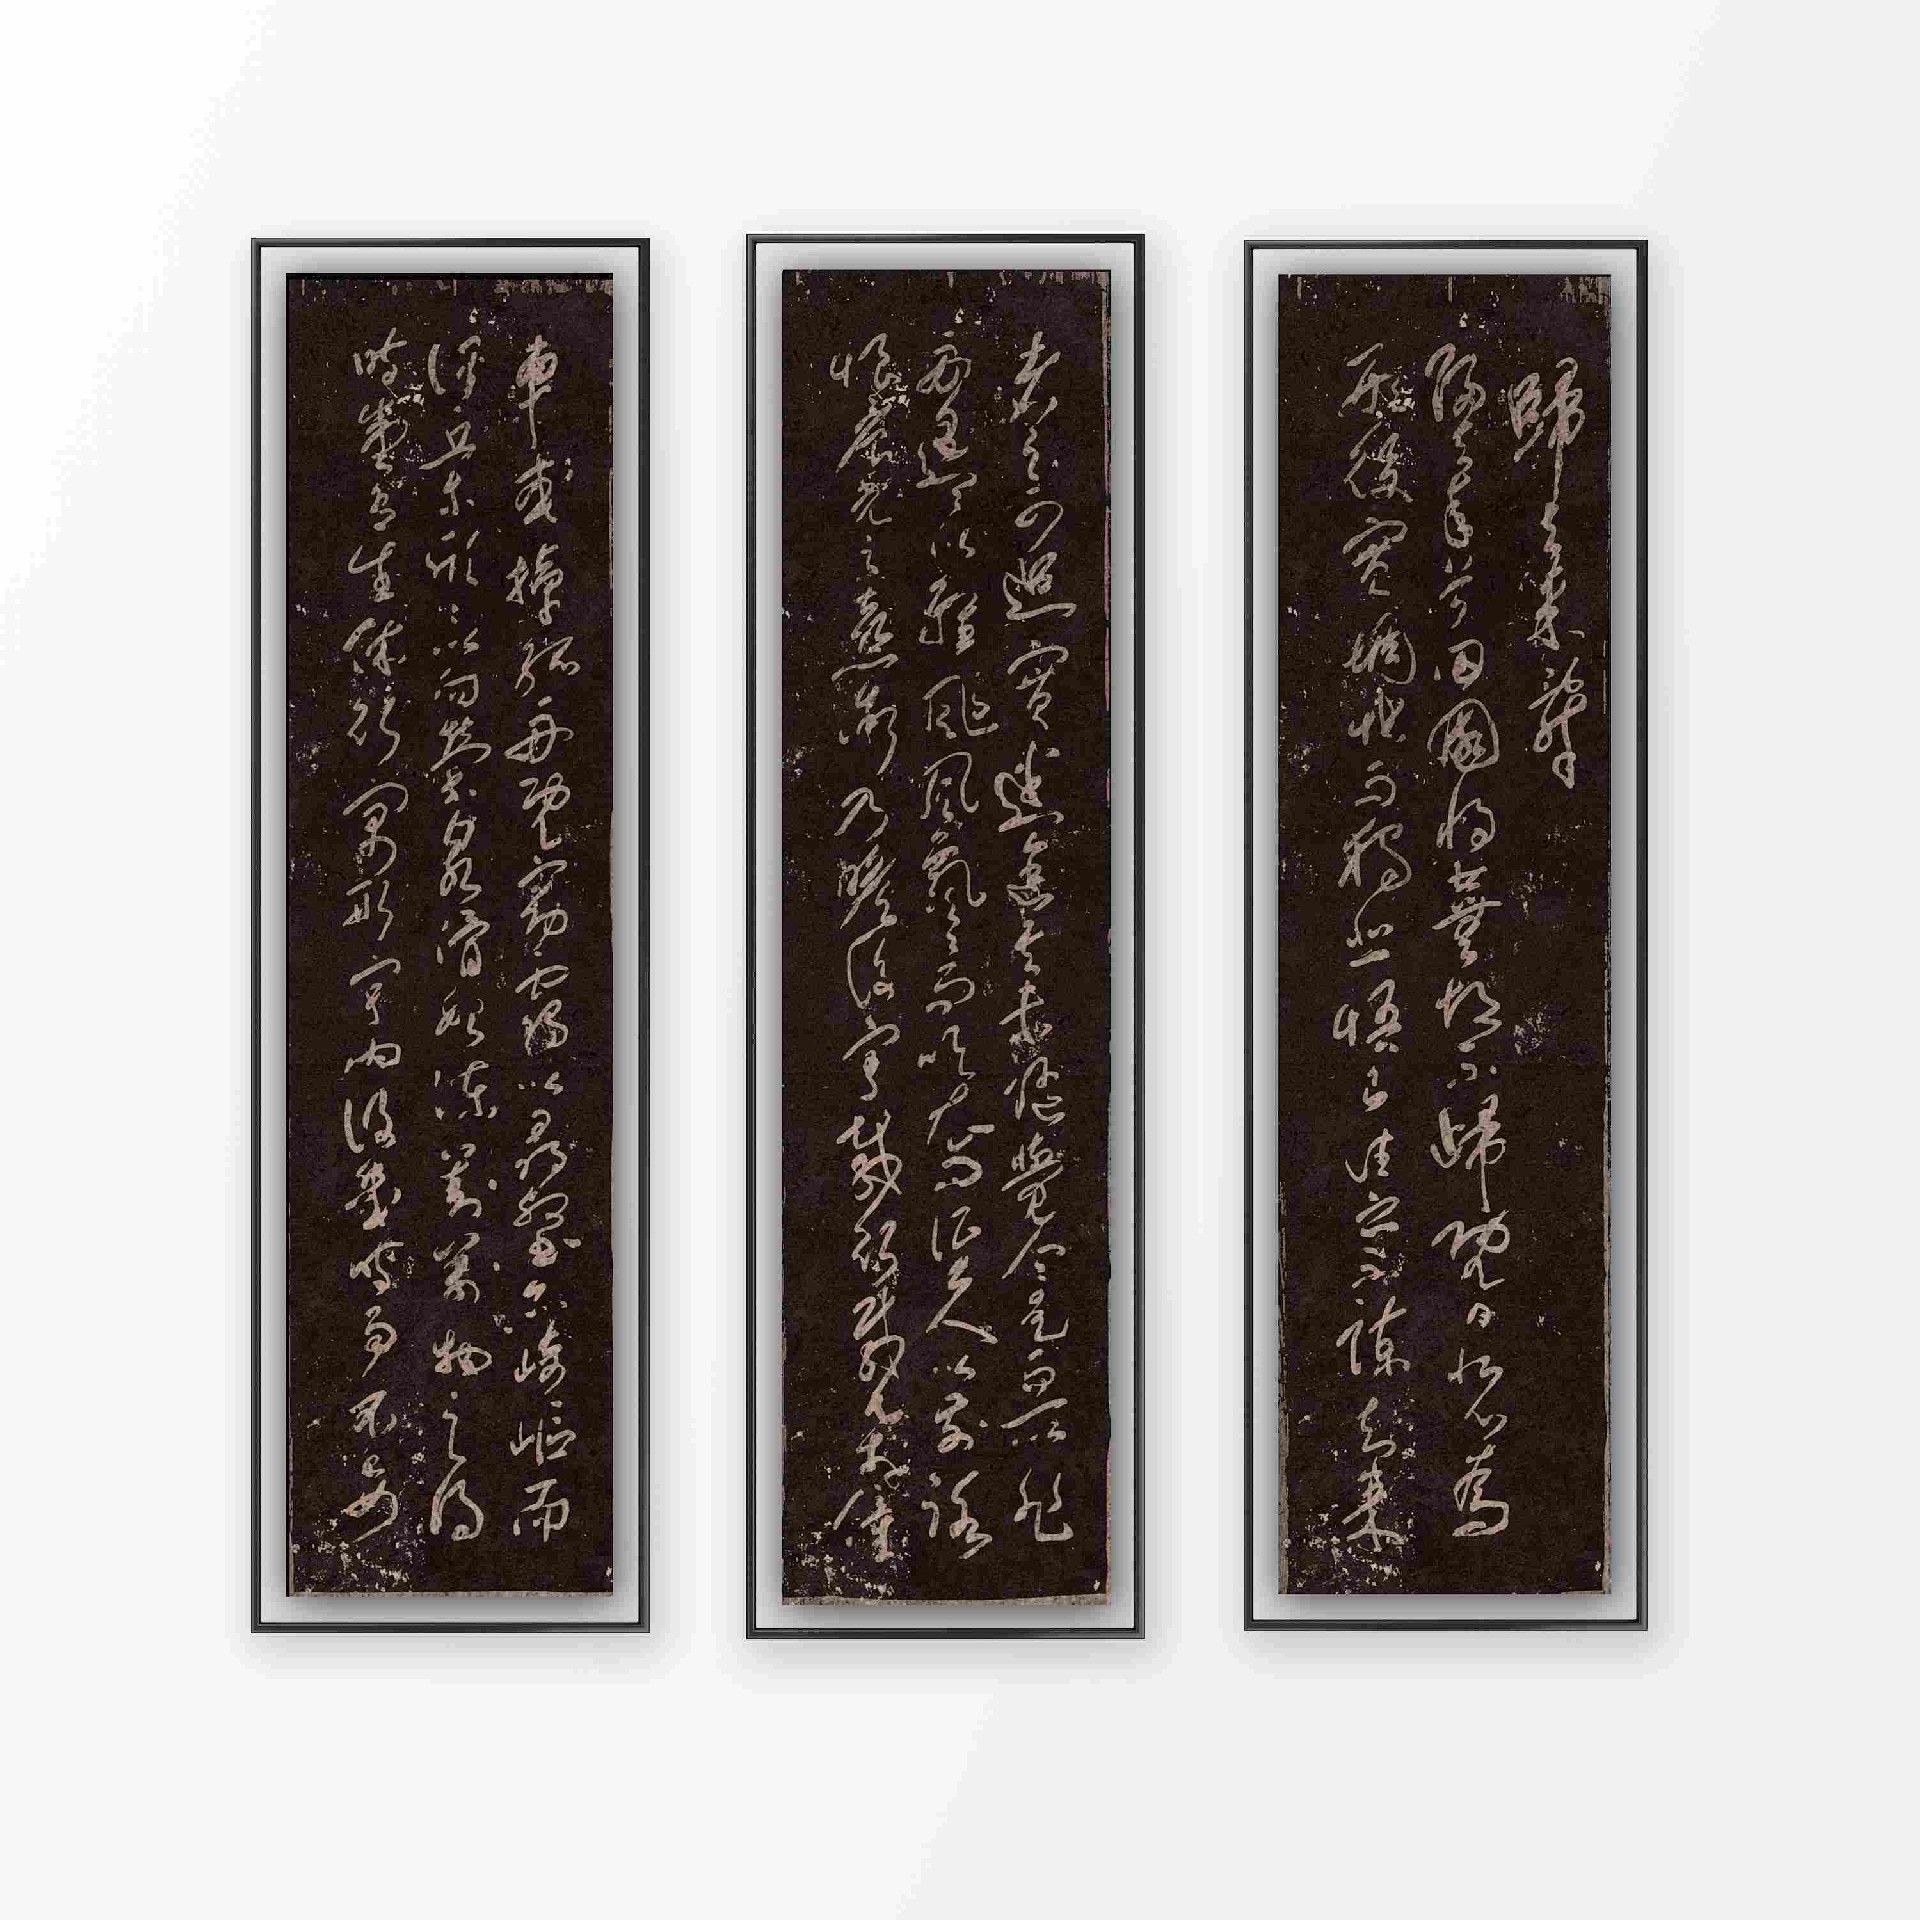 歸去來辭
歸去來兮田園將蕪胡不歸既自以心為
形役奚惆悵而獨悲悟已往之不諫知來
者之可追實迷途其未遠覺今是而昨非
舟遙遙以輕颺風飄飄而吹衣問征夫以前路
恨晨光之熹微乃瞻衡宇載欣載奔僮
車或棹孤舟既窈窕以尋壑亦崎嶇而
經丘木欣欣以向榮泉涓始流善萬物之得
時感吾生休行寓形宇內復幾時曷不委